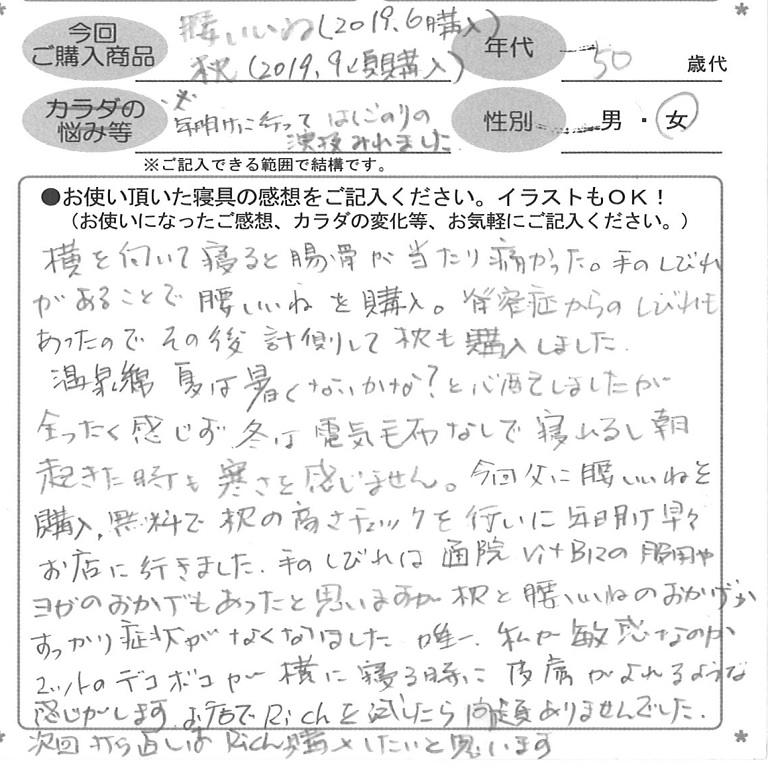 今回
ご購入商品
腰いいね(2019.6購入)
枕(2019.9頃購入)
年代
50
歳代
カラダの
悩み等
※
年明けに行って はしごのりの
演技みれました
性別
男・女
※ご記入できる範囲で結構です。
●お使い頂いた寝具の感想をご記入ください。イラストもOK！
（お使いになったご感想、カラダの変化等、お気軽にご記入ください。）
横を向いて寝ると腸骨が当たり痛かった。手のしびれ
があることで腰いいねを購入。脊窄症からのしびれも
あったのでその後計側して枕も購入しました.
温泉綿 夏は暑くないかな？と心配しましたが
全ったく感じず.冬は電気毛布なしで寝れるし朝
起きた時も寒さを感じません。今回父に腰いいねを
購入,無料で枕の高さチェックを行いに年明け早々
お店に行きました.手のしびれは通院VitB12の服用や
ヨガのおかげでもあったと思いますが枕と腰いいねのおかげか
すっかり症状がなくなりました 唯一、私が敏感なのか
マットのデコボコが横に寝る時に皮膚がよれるような
感じがします.お店でRichを試したら問題ありませんでした.
次回から直しはRich購入したいと思います